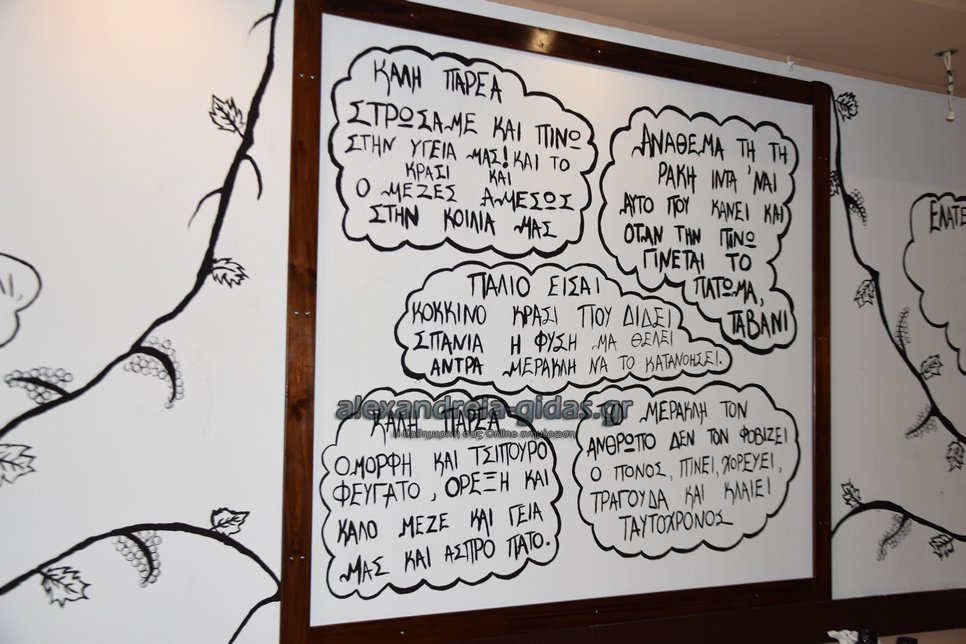 ΚΑΛΗ ΠΑΡΕΑ
ΣΤΡΩΣΑΜΕ ΚΑΙ ΠΙΝΩ
ΣΤΗΝ ΥΓΕΙΑ ΜΑΣ! ΚΑΙ ΤΟ
ΚΡΑΣΙ ΚΑΙ
Ο ΜΕΖΕΣ ΑΜΕΣΩΣ
ΣΤΗΝ ΚΟΙΛΙΑ ΜΑΣ
ΑΝΑΘΕΜΑ ΤΗ ΤΗ
ΡΑΚΗ ΙΝΤΑ 'ΝΑΙ
ΑΥΤΟ ΠΟΥ ΚΑΝΕΙ ΚΑΙ
ΟΤΑΝ ΤΗΝ ΠΙΝΩ
ΓΙΝΕΤΑΙ ΤΟ
ΠΑΤΩΜΑ,
ΤΑΒΑΝΙ
ΠΑΛΙΟ ΕΙΣΑΙ
ΚΟΚΚΙΝΟ ΚΡΑΣΙ ΠΟΥ ΔΙΔΕΙ
ΣΠΑΝΙΑ Η ΦΥΣΗ ΜΑ ΘΕΛΕΙ
ΑΝΤΡΑ ΜΕΡΑΚΛΗ ΝΑ ΤΟ ΚΑΤΑΝΟΗΣΕΙ.
alexandreia-gidas.gr
Η Καθημερινή σας Online ενημέρωση
ΚΑΛΗ ΠΑΡΕΑ
ΟΜΟΡΦΗ ΚΑΙ ΤΣΙΠΟΥΡΟ
ΦΕΥΓΑΤΟ, ΟΡΕΞΗ ΚΑΙ
ΚΑΛΟ ΜΕΖΕ ΚΑΙ ΓΕΙΑ
ΜΑΣ ΚΑΙ ΑΣΠΡΟ ΠΑΤΟ.
Ο ΜΕΡΑΚΛΗ ΤΟΝ
ΑΝΘΡΩΠΟ ΔΕΝ ΤΟΝ ΦΟΒΙΖΕΙ
Ο ΠΟΝΟΣ, ΠΙΝΕΙ, ΧΟΡΕΥΕΙ,
ΤΡΑΓΟΥΔΑ ΚΑΙ ΚΛΑΙΕΙ
ΤΑΥΤΟΧΡΟΝΟΣ
ΕΛΑΤΕ